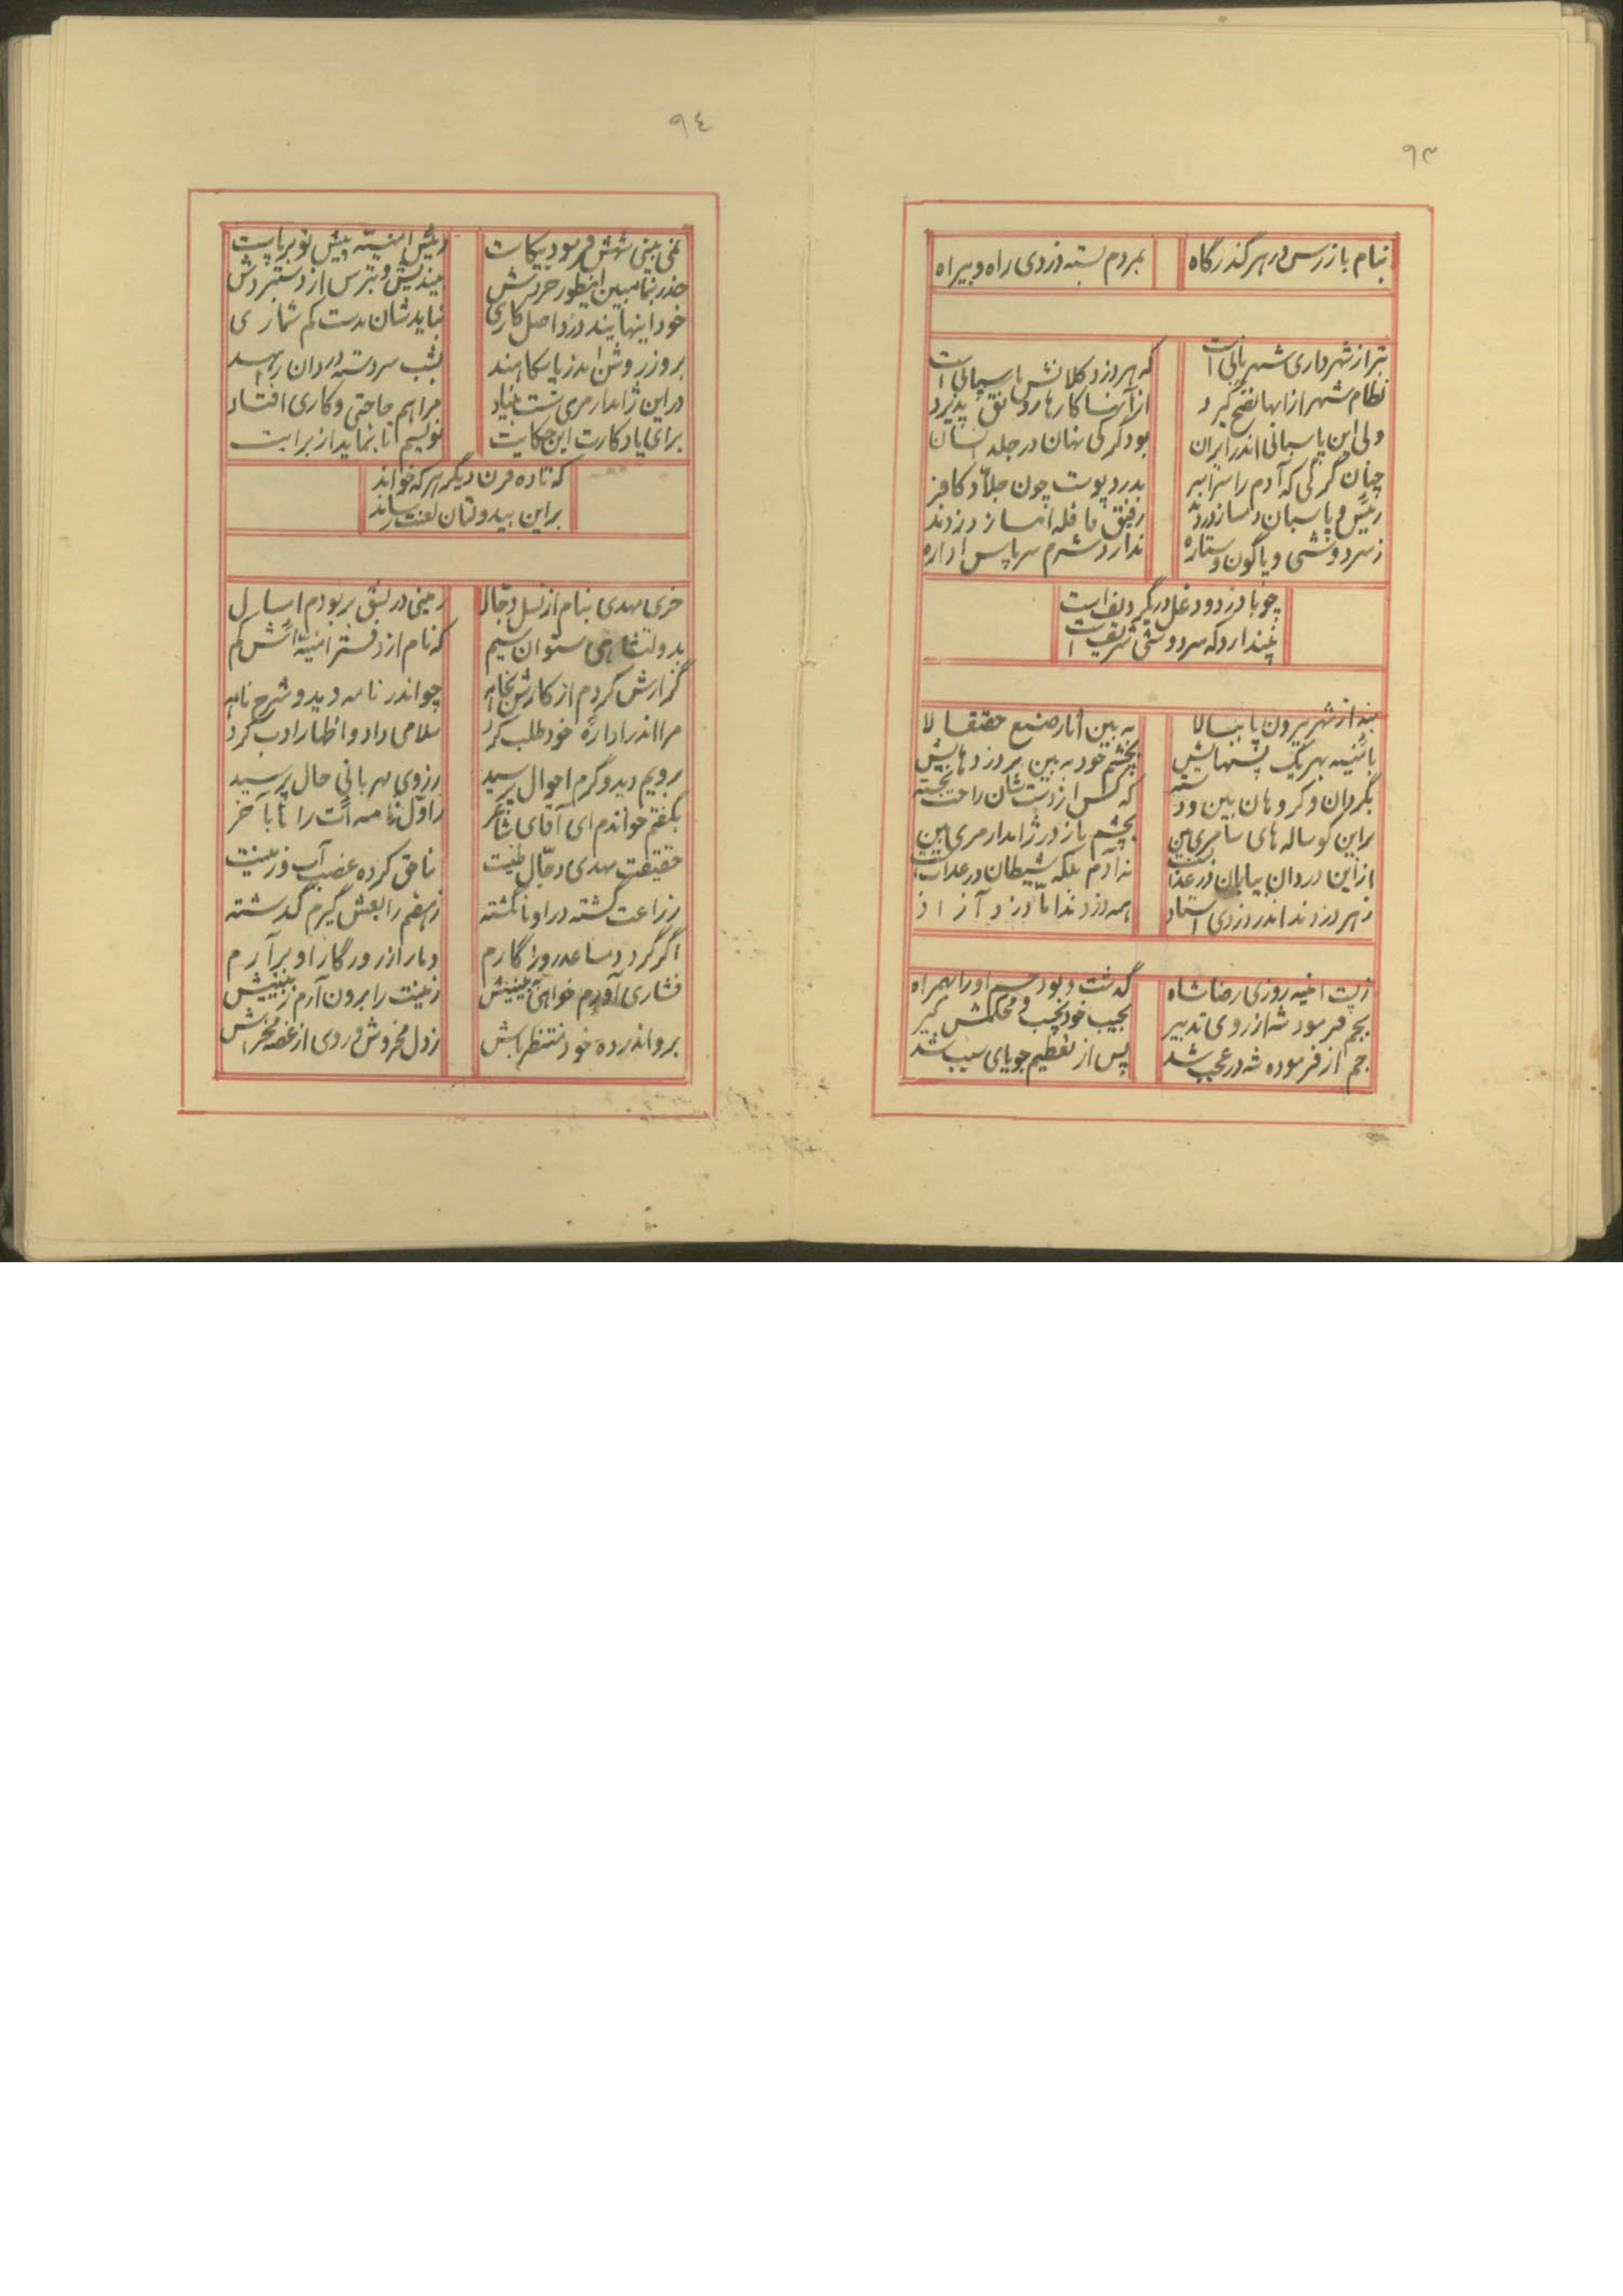 ٩٣
بنام بازرس در هر گذرگاه
بمردم بسته دزدی راه و بیراه
بتر از شهرداری شهربانی است
که هر دزد کلانش پاسبانی است
نظام شهر از آنها نضج گیرد
از آنها کارها رونق پذیرد
ولی این پاسبانی اندر ایران
بود گرگی نهان در جلد انسان
چنان گرگی که آدم را سراسر
بدرد پوست چون جلاد کافر
رئیس و پاسبان دمساز دزدند
رفیق قافله انباز دزدند
ز سردوشی و پاگون و ستاره
ندارد شرم سرپاس اداره
چو با دزد و دغل در گیر و بند است
نپندارد که سردوشی شریف است
بنه از شهر بیرون پا ببالا
به بین آثار صنع حقتعالا
بامنیه بهر یک پستهایش
بچشم خود به بین بر دزدهایش
بگردان و گروهان بین و دسته
که کس از دست شان راحت نجسته
بر این گوساله های سامری بین
بچشم باز در ژاندارمری بین
از این دزدان بیابان در عذابست
نه آدم بلکه شیطان در عذابست
ز هر دزدند اندر دزدی استاد
همه دزدند اما دزد آزاد
ز پست امنیه روزی رضا شاه
گذشت و بود جم او را بهمراه
بجم فرمود شه از روی تدبیر
بجیب خود بچسب و محکمش گیر
جم از فرموده شه در عجب شد
پس از تعظیم جویای سبب شد
٩٤
نمی بینی شهش فرمود پیکاست
رئیس امنیه پیش تو برپاست
حذر بنما مبین اینطور خردش
بیندیش و بترس از دستبردش
خود اینهایند دزد اصل کاری
نباید شان بدست کم شماری
بروز روشن اندر پاسگاهند
بشب سردسته دزدان راهند
در این ژاندارمری سست بنیاد
مرا هم حاجتی و کاری افتاد
برای یادگارت این حکایت
نویسم تا بماند از برایت
که تا ده قرن دیگر هر که خواند
بر این بیدولتان لعنت رساند
خری مهدی بنام از نسل دجال
زمینی در نسق بربودم امسال
بدولتشاهی ستوان سیم
که نام از دفتر امنیه اش گم
گزارش کردم از کارش بنامه
چو اندر نامه دید و شرح نامه
مرا اندر اداره خود طلب کرد
سلامی داد و اظهار ادب کرد
برویم دید و گرم احوال پرسید
ز روی مهربانی حال پرسید
بگفتم خواندم ای آقای شاعر
ز اول نامه ات را تا بآخر
حقیقت مهدی دجال طینت
بناحق کرده غصب آب و زمینت
زراعت گشته در او نا گشته
ز هفتم رابعش گیرم گذشته
اگر گردد مساعد روزگارم
دمار از روزگار او برآرم
فشاری آورم خواهی به بینیش
زمینت را برون آرم ز بینیش
برو اندر ده خود منتظر باش
ز دل مخروش و روی از غصه مخراش